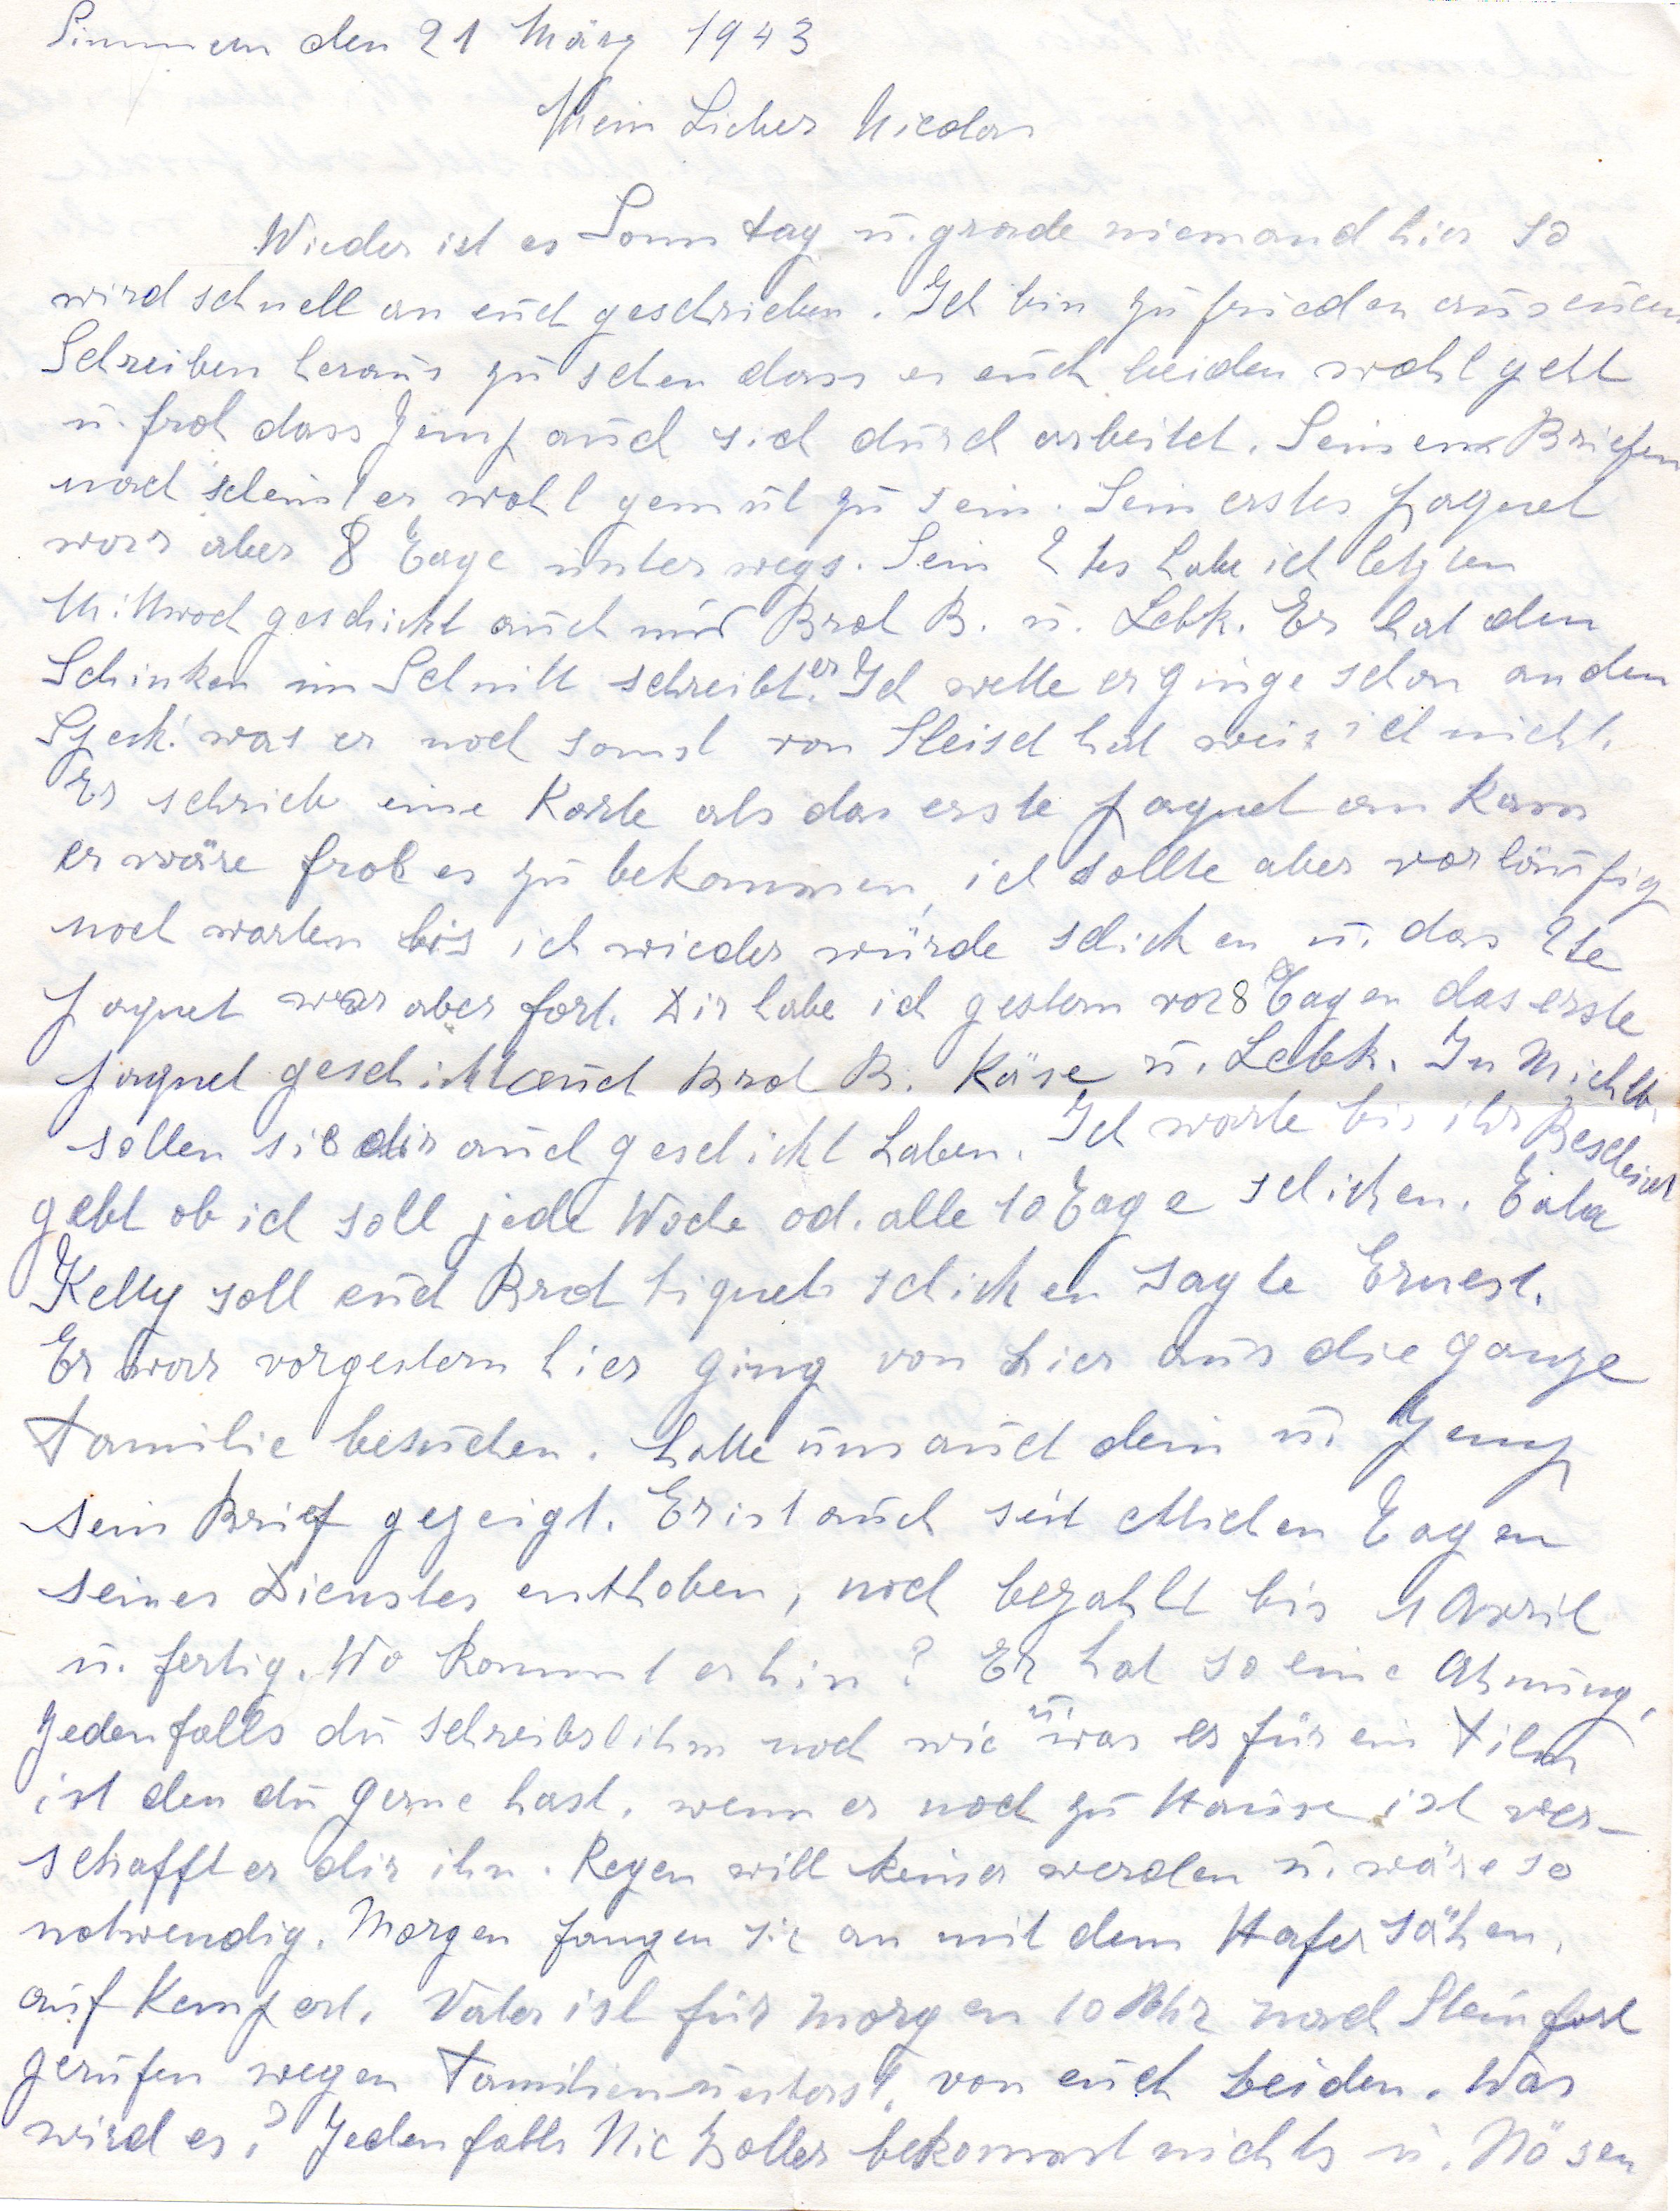 Simmern den 21 März 1943
Mein Lieber Nicolas
Wieder ist es Sonntag u. grade niemand hier so
wird schnell an euch geschrieben. Ich bin zufrieden aus euren
Schreiben heraus zu sehen dass es euch beiden wohl geht
u. froh dass Jemp auch sich durch arbeitet. Seinen Briefen
nach scheint er wohl gemut zu sein. Sein erstes paquet
war aber 8 Tage unterwegs. Sein 2tes habe ich letzten
Mittwoch geschickt auch mit Brot B. u. Lebk. Er hat den
Schinken im Schnitt schreibt er. Ich wette er ginge schon an den
Speck! was er noch sonst von Fleisch hat weis ich nicht.
Er schrieb eine Karte als das erste paquet an kam
er wäre froh es zu bekommen, ich sollte aber vorläufig
noch warten bis ich wieder würde schicken u. das 2te
paquet war aber fort. Dir habe ich gestern vor 8 Tagen das erste
paquet geschickt auch Brot B. Käse u. Lebk. In Michelb.
sollen sie dir auch geschickt haben. Ich warte bis ihr Bescheid
gebt ob ich soll jede Woche od. alle 10 Tage schicken. Tata
Ketty soll euch Brot tiquets schicken sagte Ernest.
Er war vorgestern hier ging von hier aus die ganze
Familie besuchen. hatte uns auch dein u. Jemp
sein Brief gezeigt. Er ist auch seit etlichen Tagen
seines Dienstes enthoben, noch bezahlt bis 1 April
u. fertig. Wo kommt er hin? Er hat so eine Ahnung,
Jedenfalls du schreibst ihm noch wie u. was es für ein Film
ist den du gerne hast. wenn er noch zu Hause ist ver-
schafft er dir ihn. Regen will keiner werden u. wäre so
notwendig. Morgen fangen sie an mit dem Hafer sähen,
auf Kempert. Vater ist für morgen 10 Uhr nach Steinfort
gerufen wegen Familienunterst. von euch beiden. Was
wird es? Jedenfalls Nic Zoller bekommt nichts u. Nösen